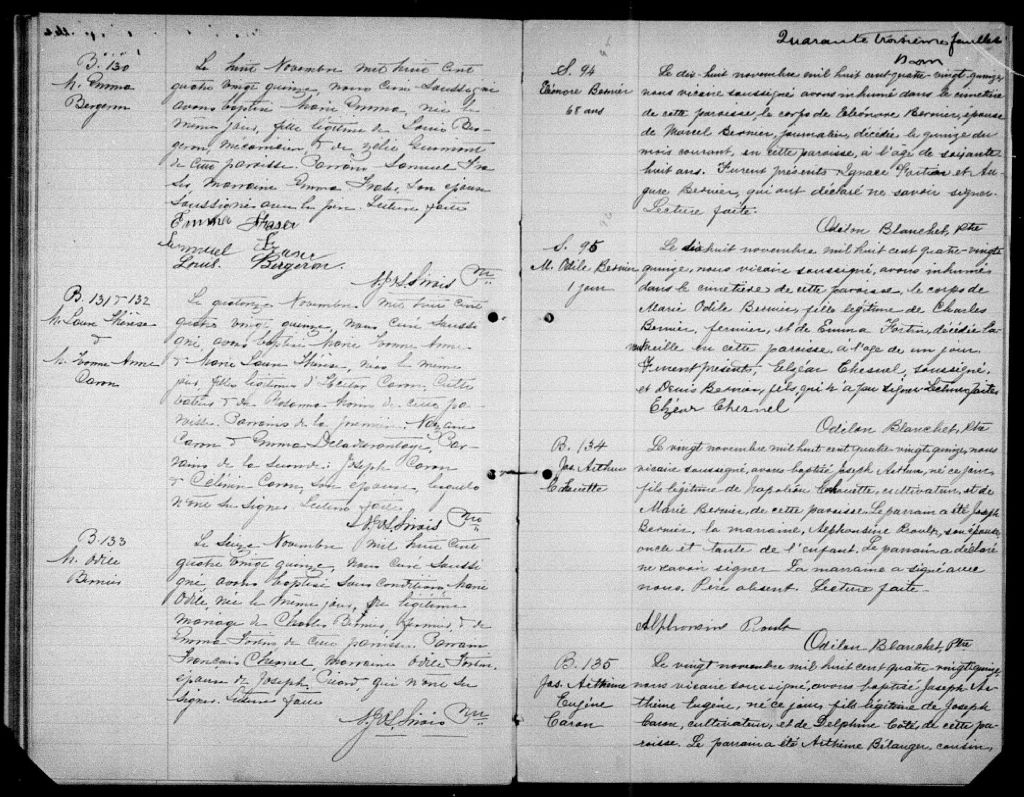 B. 130
M. Emma
Bergeron
Le huit Novembre mil huit cent
quatre vingt quinze, nous Curé soussigné
avons baptisé Marie Emma, née le
même jour, fille légitime de Louis Ber-
geron, mecanicien, & de
de cette paroisse Parrain Samuel Fra-
ser, Marraine Emma Fraser, son épouse
soussignés avec le père. Lecture faite
Emma Fraser
Samuel Fraser
Louis Bergeron.
Sirois Ptre
B. 131 & 132
M. Laure Thérèse
&
M. Yvonne Anne
Caron
Le quatorze Novembre mil huit cent
quatre vingt quinze, nous Curé soussi-
gné, avons baptisé Marie Yvonne Anne
& Marie Laure Thérèse, nées le même
jour, filles légitimes d'Hector Caron, Culti-
vateur & de Rosanna Morin de cette pa-
roisse. Parrains de la première: Nazaire
Caron & Emma Deladurantaye, Par-
rains de la seconde: Joseph Caron
& Celina Caron, son épouse, lesquels
n'ont su signer. Lecture faite
Sirois Ptre
B. 133
M. Odile
Bernier
Le Seize Novembre mil huit cent
quatre vingt quinze, nous Curé soussi-
gné avons baptisé sous condition Marie
Odile, née le même jour, du légitime
mariage de Charles Bernier, Fermier & de
Emma Fortin de cette paroisse. Parrain
Francois Chesnel, Marraine Odile Fortin,
épouse de Joseph Picard, qui n'ont su
signer. Lecture faite
Sirois Ptre
Quarante troisième feuillet
S. 94
Eléonore Bernier
68 ans
Le dix-huit novembre mil huit cent quatre-vingt quinze,
nous vicaire soussigné avons inhumé dans le cimetière
de cette paroisse, le corps de Eléonore Bernier, épouse
de Marcel Bernier, journalier, décédée le quinze du
mois courant, en cette paroisse, à l'âge de soixante
huit ans. Furent présents Ignace et Au-
guste Bernier, qui ont déclaré ne savoir signer.
Lecture faite.
Odilon Blanchet, Ptre
S. 95
M. Odile Bernier
1 jour
Le dix huit novembre mil huit cent quatre-vingt
quinze, nous vicaire soussigné, avons inhumé
dans le cimetière de cette paroisse, le corps de
Marie Odile Bernier, fille légitime de Charles
Bernier, fermier, et de Emma Fortin, décédée l'a-
vantveille en cette paroisse, à l'âge de un jour.
Furent présents, Elzéar Chesnel, soussigné,
et Denis Bernier, fils, qui n'a pu signer Lecture faite
Elzéar Chesnel
Odilon Blanchet, Ptre
B. 134
Jos. Arthur
Chouette
Le vingt novembre mil huit cent quatre vingt quinze, nous
vicaire soussigné, avons baptisé Joseph Arthur, né ce jour,
fils légitime de Napoléon Chouette, cultivateur, et de
Marie Bernier, de cette paroisse. Le parrain a été Joseph
Bernier, la marraine, Alphonsine Proulx, son épouse,
oncle et tante de l'enfant. Le parrain a déclaré
ne savoir signer La marraine a signé avec
nous. Père absent. Lecture faite.
Alphonsine Proulx
Odilon Blanchet, Ptre
B. 135
Jos. Arthème
Eugène
Caron
Le vingt novembre mil huit cent quatre vingt quinze,
nous vicaire soussigné, avons baptisé Joseph Ar-
thème Eugène, né ce jour, fils légitime de Joseph
Caron, cultivateur, et de Delphine Coté, de cette pa-
roisse. Le parrain a été Arthème Bélanger, cousin,